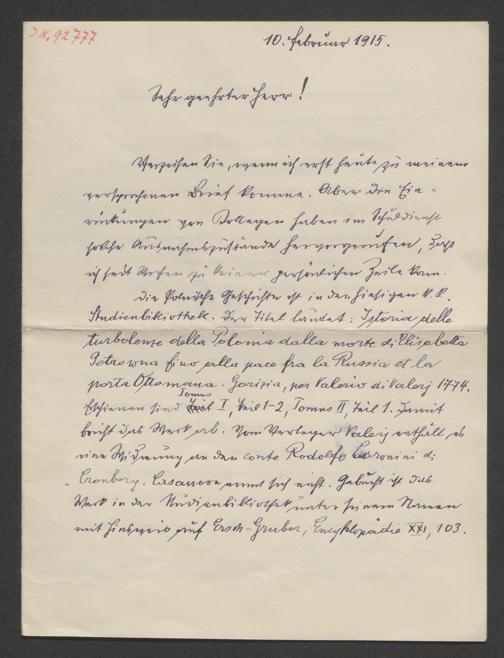 J.N. 92777
10. Februar 1915.
Sehr geehrter Herr!
Verzeihen Sie, wenn ich erst heute zu meinem
versprochenen Brief komme. Aber die Ein=
rückungen von Kollegen haben im Schuldienst
solche Ausnahmszustände hervorgerufen, daß
ich seit Wochen zu keiner persönlichen Zeile kam.
Die Polnische Geschichte ist in der hiesigen k. k.
Studienbibliothek. Der Titel lautet: Istoria delle
turbolenze della Polonia dalla morte di Elisabetta
Petrowna fino alla pace fra la Russia et la
porta Ottomana. Gorizia, per Valerio di Valerj 1774.
Erschienen sind Tomus I, Teil 1-2, Tomus II, Teil 1. Damit
bricht das Werk ab. Vom Verleger Valerj enthält es
eine Widmung an den conte Rodolfo Coronini di
Cronberg. Casanova nennt sich nicht. Gebucht ist das
Werk in der Studienbibliothek unter seinem Namen
mit Hinweis auf Ersch-Gruber, Encyklopädie XXI, 103.